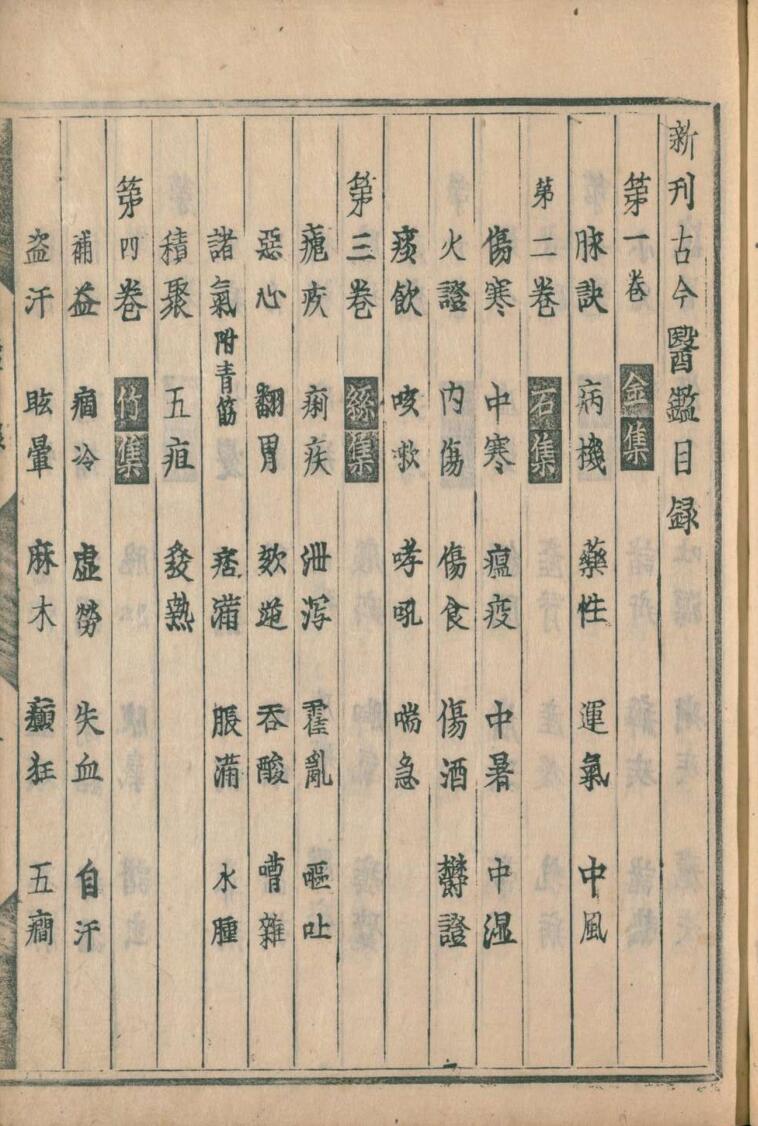 新刊古今醫鑑目録
第一卷 金集
脉訣 病機 藥性 運氣 中風
第二卷 石集
傷寒 中寒 瘟疫 中暑 中湿
火證 内傷 傷食 傷酒 欝證
痰飲 咳嗽 哮吼 喘急
第三卷 絲集
瘧疾 痢疾 泄泻 霍亂 嘔吐
惡心 翻胃 欬逆 吞酸 嘈雜
諸氣附青筋 痞滿 脹滿 水腫
積聚 五疸 發熱
第四卷 竹集
補益 痼冷 虚勞 失血 自汗
盗汗 眩暈 麻木 癲狂 五癇